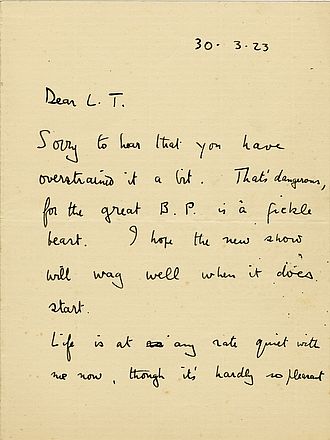 30. 3. 23
Dear L. T.
Sorry to hear that you have
overstrained it a bit. That's dangerous,
for the great B. P. is a fickle
beast. I hope the new show
will wag well when it does
start.
Life is at any rate quiet with
me now, though it's hardly so pleasant